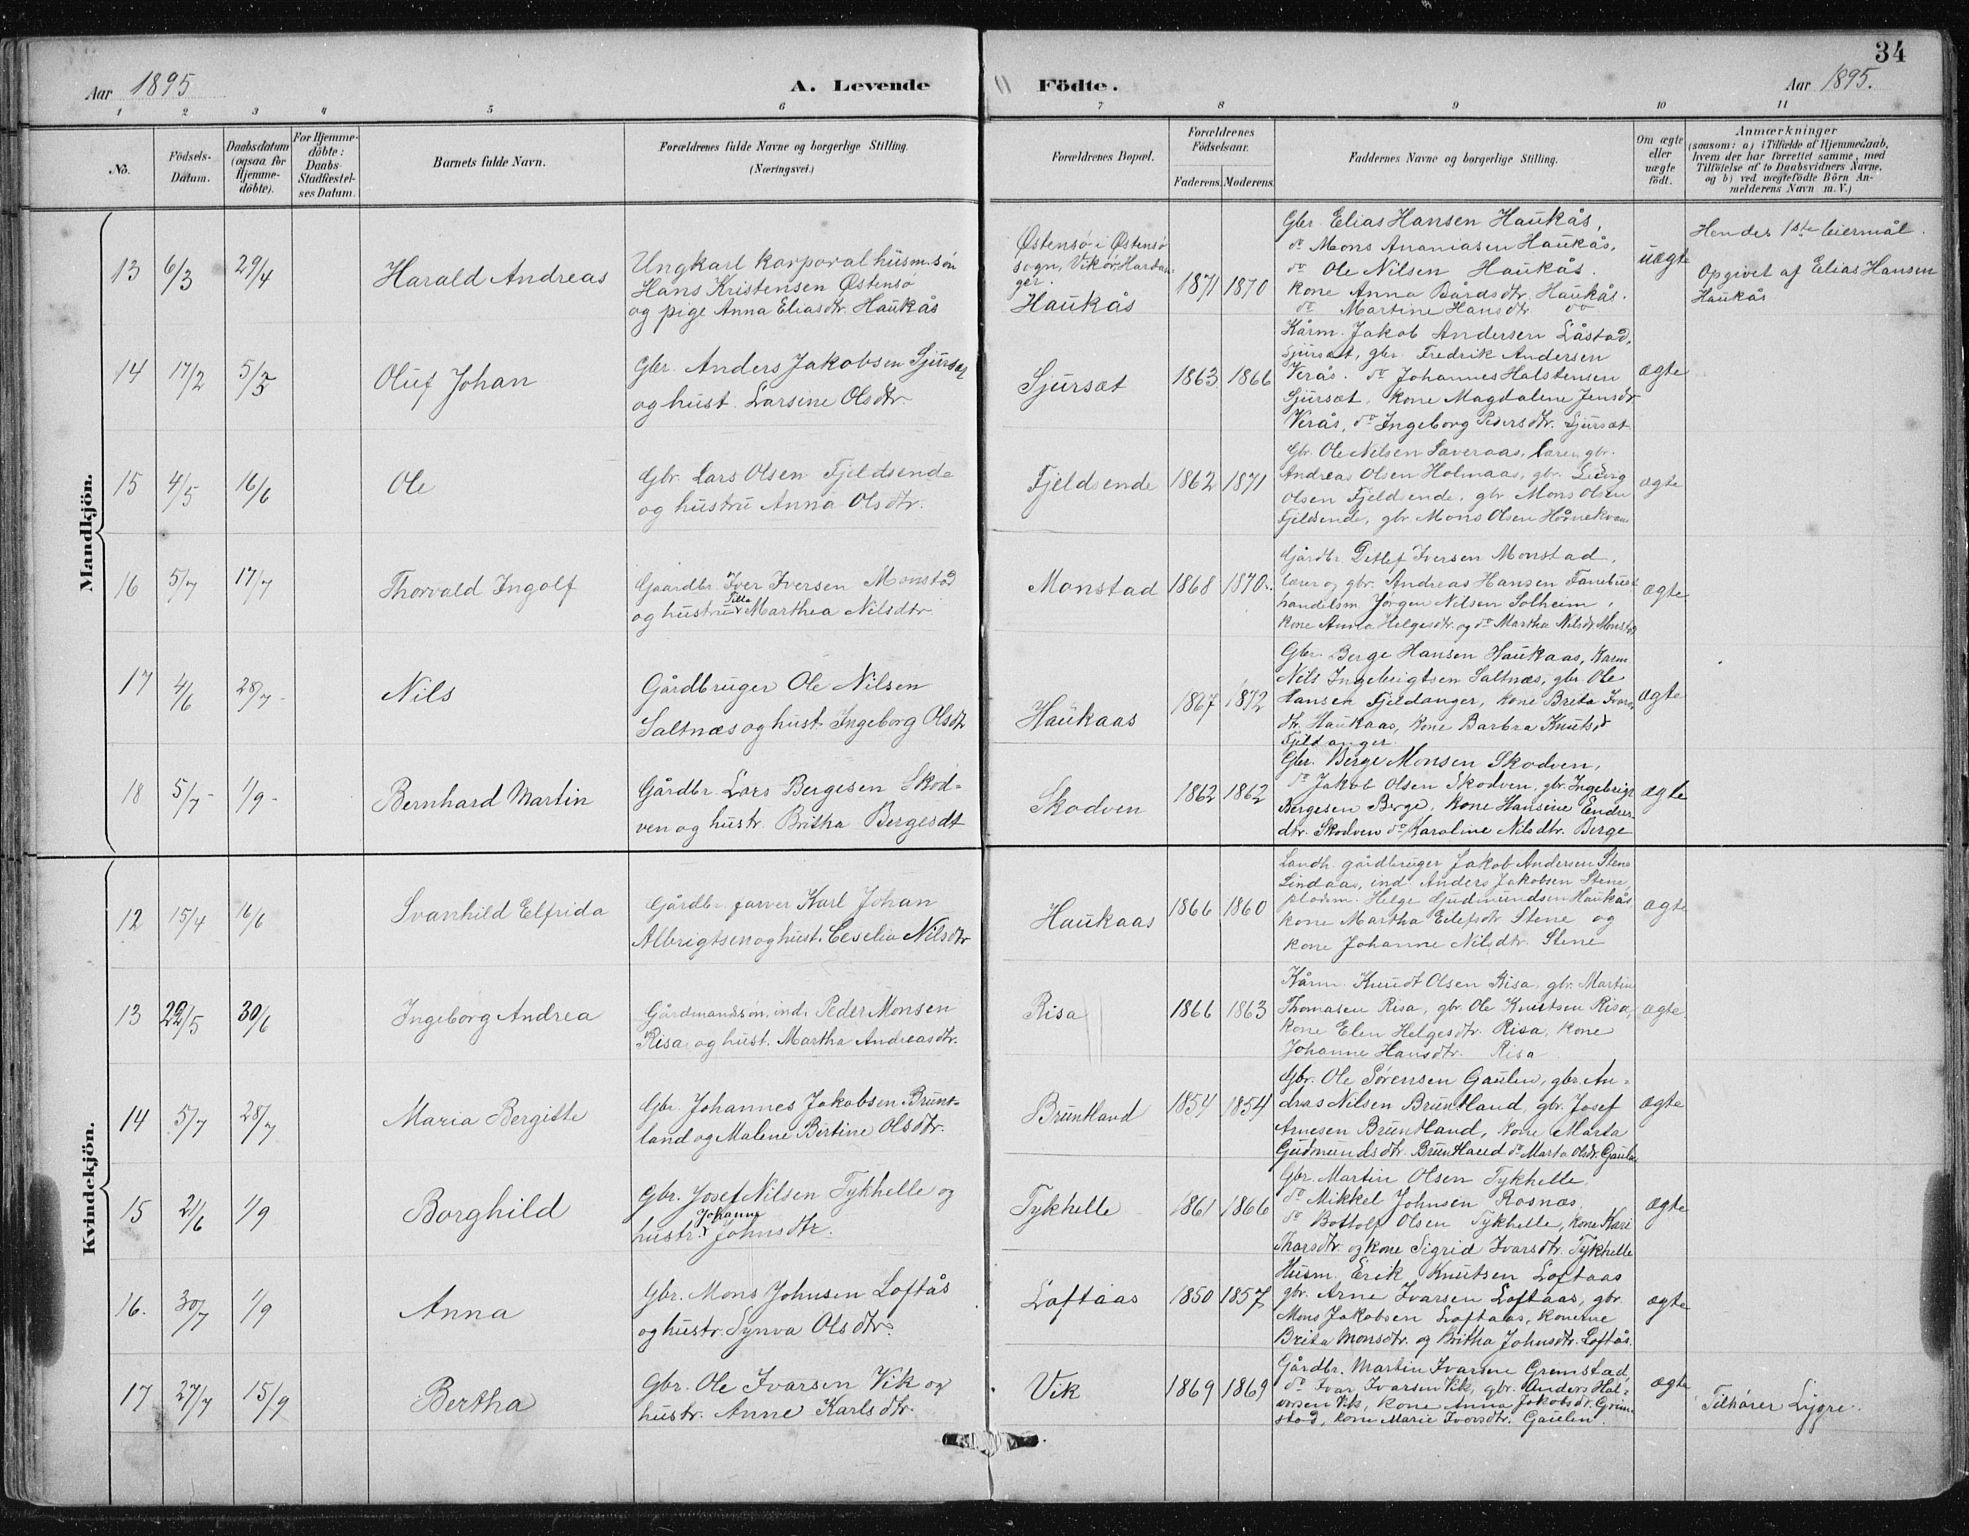 34
Aar 1895
A. Levende
Födte.
Aar 1895.
1 2 3 4 5 6 7 8 9 10 11
No.
Födsels-Datum.
Daabsdatum (ogsaa for Hjemmedöbte).
For Hjemmedöbte: Daabs-Stadfæstelses Datum.
Barnets fulde Navn.
Forældrenes fulde Navne og borgerlige Stilling. (Næringsvei.)
Forældrenes Bopæl.
Forældrenes Födselsaar.
Faderens. Moderens.
Faddernes Navne og borgerlige Stilling.
Om ægte eller uægte födt.
Anmærkninger
(saasom: a) i Tilfælde af Hjemmedaab, hvem der har forrettet samme, med Tilföielse af to Daabsvidners Navne, og b) ved uægtefödte Börn Anmelderens Navn m. V.)
Mandkjön.
13 6/3 29/4 Harald Andreas
Ungkarl korporal husm.søn
Hans Kristensen Østensø
og pige Anna Eliasdtr. Haukås
Østensø i Østensø
sogn, Vikør, Hardanger.
Haukås
1871 1870
Gbr. Elias Hansen Haukås,
do Mons Ananiasen Haukås,
do Ole Nilsen Haukås.
kone Anna Bårdsdtr. Haukås.
do Martine Hansdtr do
uægte
Hendes 1ste leiermål.
Opgivet af Elias Hansen
Haukås
14 17/2 5/5 Oluf Johan
Gbr. Anders Jakobsen Sjursæt
og hust. Larsine Olsdtr.
Sjursæt
1863 1866
Kårm. Jakob Andersen Låstad,
Sjursæt, gbr. Fredrik Andersen
Verås. do Johannes Halstensen
Sjursæt, kone Magdalene Jensdtr
Verås, do Ingeborg Pedersdtr. Sjursæt
ægte
15 4/5 16/6 Ole
Gbr. Lars Olsen Fjeldsende
og hustru Anna Olsdtr.
Fjeldsende
1862 1871
Gbr. Ole Nilsen
Andreas Olsen Holmaas, gbr.
Olsen Fjeldsende, gbr Mons Olsen
Fjeldsende, gbr. Mons Olsen
ægte
16 5/7 17/7 Thorvald Ingolf
Gaardbr. Iver Iversen Monstad
og hustru Tilla Marthea Nilsdtr
Monstad
1868 1870.
Gårdbr Detlef Iversen Monstad,
lærer og gbr. Andreas Hansen Fanebust
handelsm. Jørgen Nilsen Solheim,
kone Anna Helgesdtr. og do Martha Nilsdtr Monstad
ægte
17 4/6 28/7 Nils
Gårdbruger Ole Nilsen
Saltnæs og hust. Ingeborg Olsdtr
Haukaas
1867 1872
Gbr. Berge Hansen Haukaas, kårm
Nils Ingebrigtsen Saltnæs, gbr. Ole
Hansen Fjeldanger, kone Brita Ivars
dtr. Haukaas, kone Barbra Knutsd
Fjeldanger.
ægte
18 5/7 1/9 Bernhard Martin
Gårdbr. Lars Bergesen Skod-
ven og hustr. Britha Bergesdt
Skodven
1862 1862
Gbr. Berge Monsen Skodven,
do Jakob Olsen Skodven, gbr. Ingebrigt
Bergesen Berge, kone Hansine Endres
dtr. Skodven do Karoline Nilsdtr. Berge
ægte
Kvindekjön.
12 15/4 16/6 Svanhild Elfrida
Gårdbr. farver Karl Johan
Albrigtsen og hust. Ceselia Nilsdtr
Haukaas
1866 1860
Landh. gårdbruger Jakob Andersen Stene
Lindaas, ind. Anders Jakobsen Stene,
pladsm. Helge Gudmundsen Haukås
kone Martha Eilefsdtr Stene og
kone Johanne Nilsdtr. Stene
ægte
13 22/5 30/6 Ingeborg Andrea
Gårdmandssøn, ind. Peder Monsen
Risa og hust. Martha Andreasdtr.
Risa
1866 1863
Kårm. Knudt Olsen Risa, gbr. Martin
Thomasen Risa, gbr. Ole Knutsen Risa,
kone Elen Helgesdtr. Risa, kone
Johanne Hansdtr. Risa
ægte
14 5/7 28/7 Maria Bergitte
Gbr. Johannes Jakobsen Brunt-
land og Malene Bertine Olsdtr.
Bruntland
1854 1854
Gbr. Ole Sørensen Gaulen, gbr. An-
dreas Nilsen Bruntland, gbr. Josef
Arnesen Bruntland, kone Marta
Gudmundsdtr. Bruntland do Marta Olsdtr. Gaulen
ægte
15 21/6 1/9 Borghild
Gbr. Josef Nilsen Tykhelle og
hustr. Johanne Johnsdtr.
Tykhelle
1861 1866
Gbr. Martin Olsen Tykhelle,
do Mikkel Johnsen Rosnæs
do Bottolf Olsen Tykhelle, kone Kari
Tharsdtr. og kone Sigrid Ivarsdtr. Tykhelle
ægte
16. 30/7 1/9 Anna
Gbr. Mons Johnsen Loftås
og hustr. Synva Olsdtr.
Loftaas
1850 1857
Husm. Erik Knutsen Loftaas
gbr. Arne Ivarsen Loftaas, gbr.
Mons Jakobsen Loftaas, konerne
Brita Monsdtr. og Britha Johnsdtr. Loftås.
ægte
17 27/7 15/9 Bertha
Gbr. Ole Ivarsen Vik og
hustr. Anne Karlsdtr.
Vik
1869 1869
Gårdbr. Martin Ivarsen Gremstad,
do Ivar Ivarsen Vik, gbr. Anders Hal-
vorsen Vik, kone Anna Jakobsdtr. Grim-
stad, kone Marie Ivarsdtr. Gaulen
ægte
Tilhører Lygre.